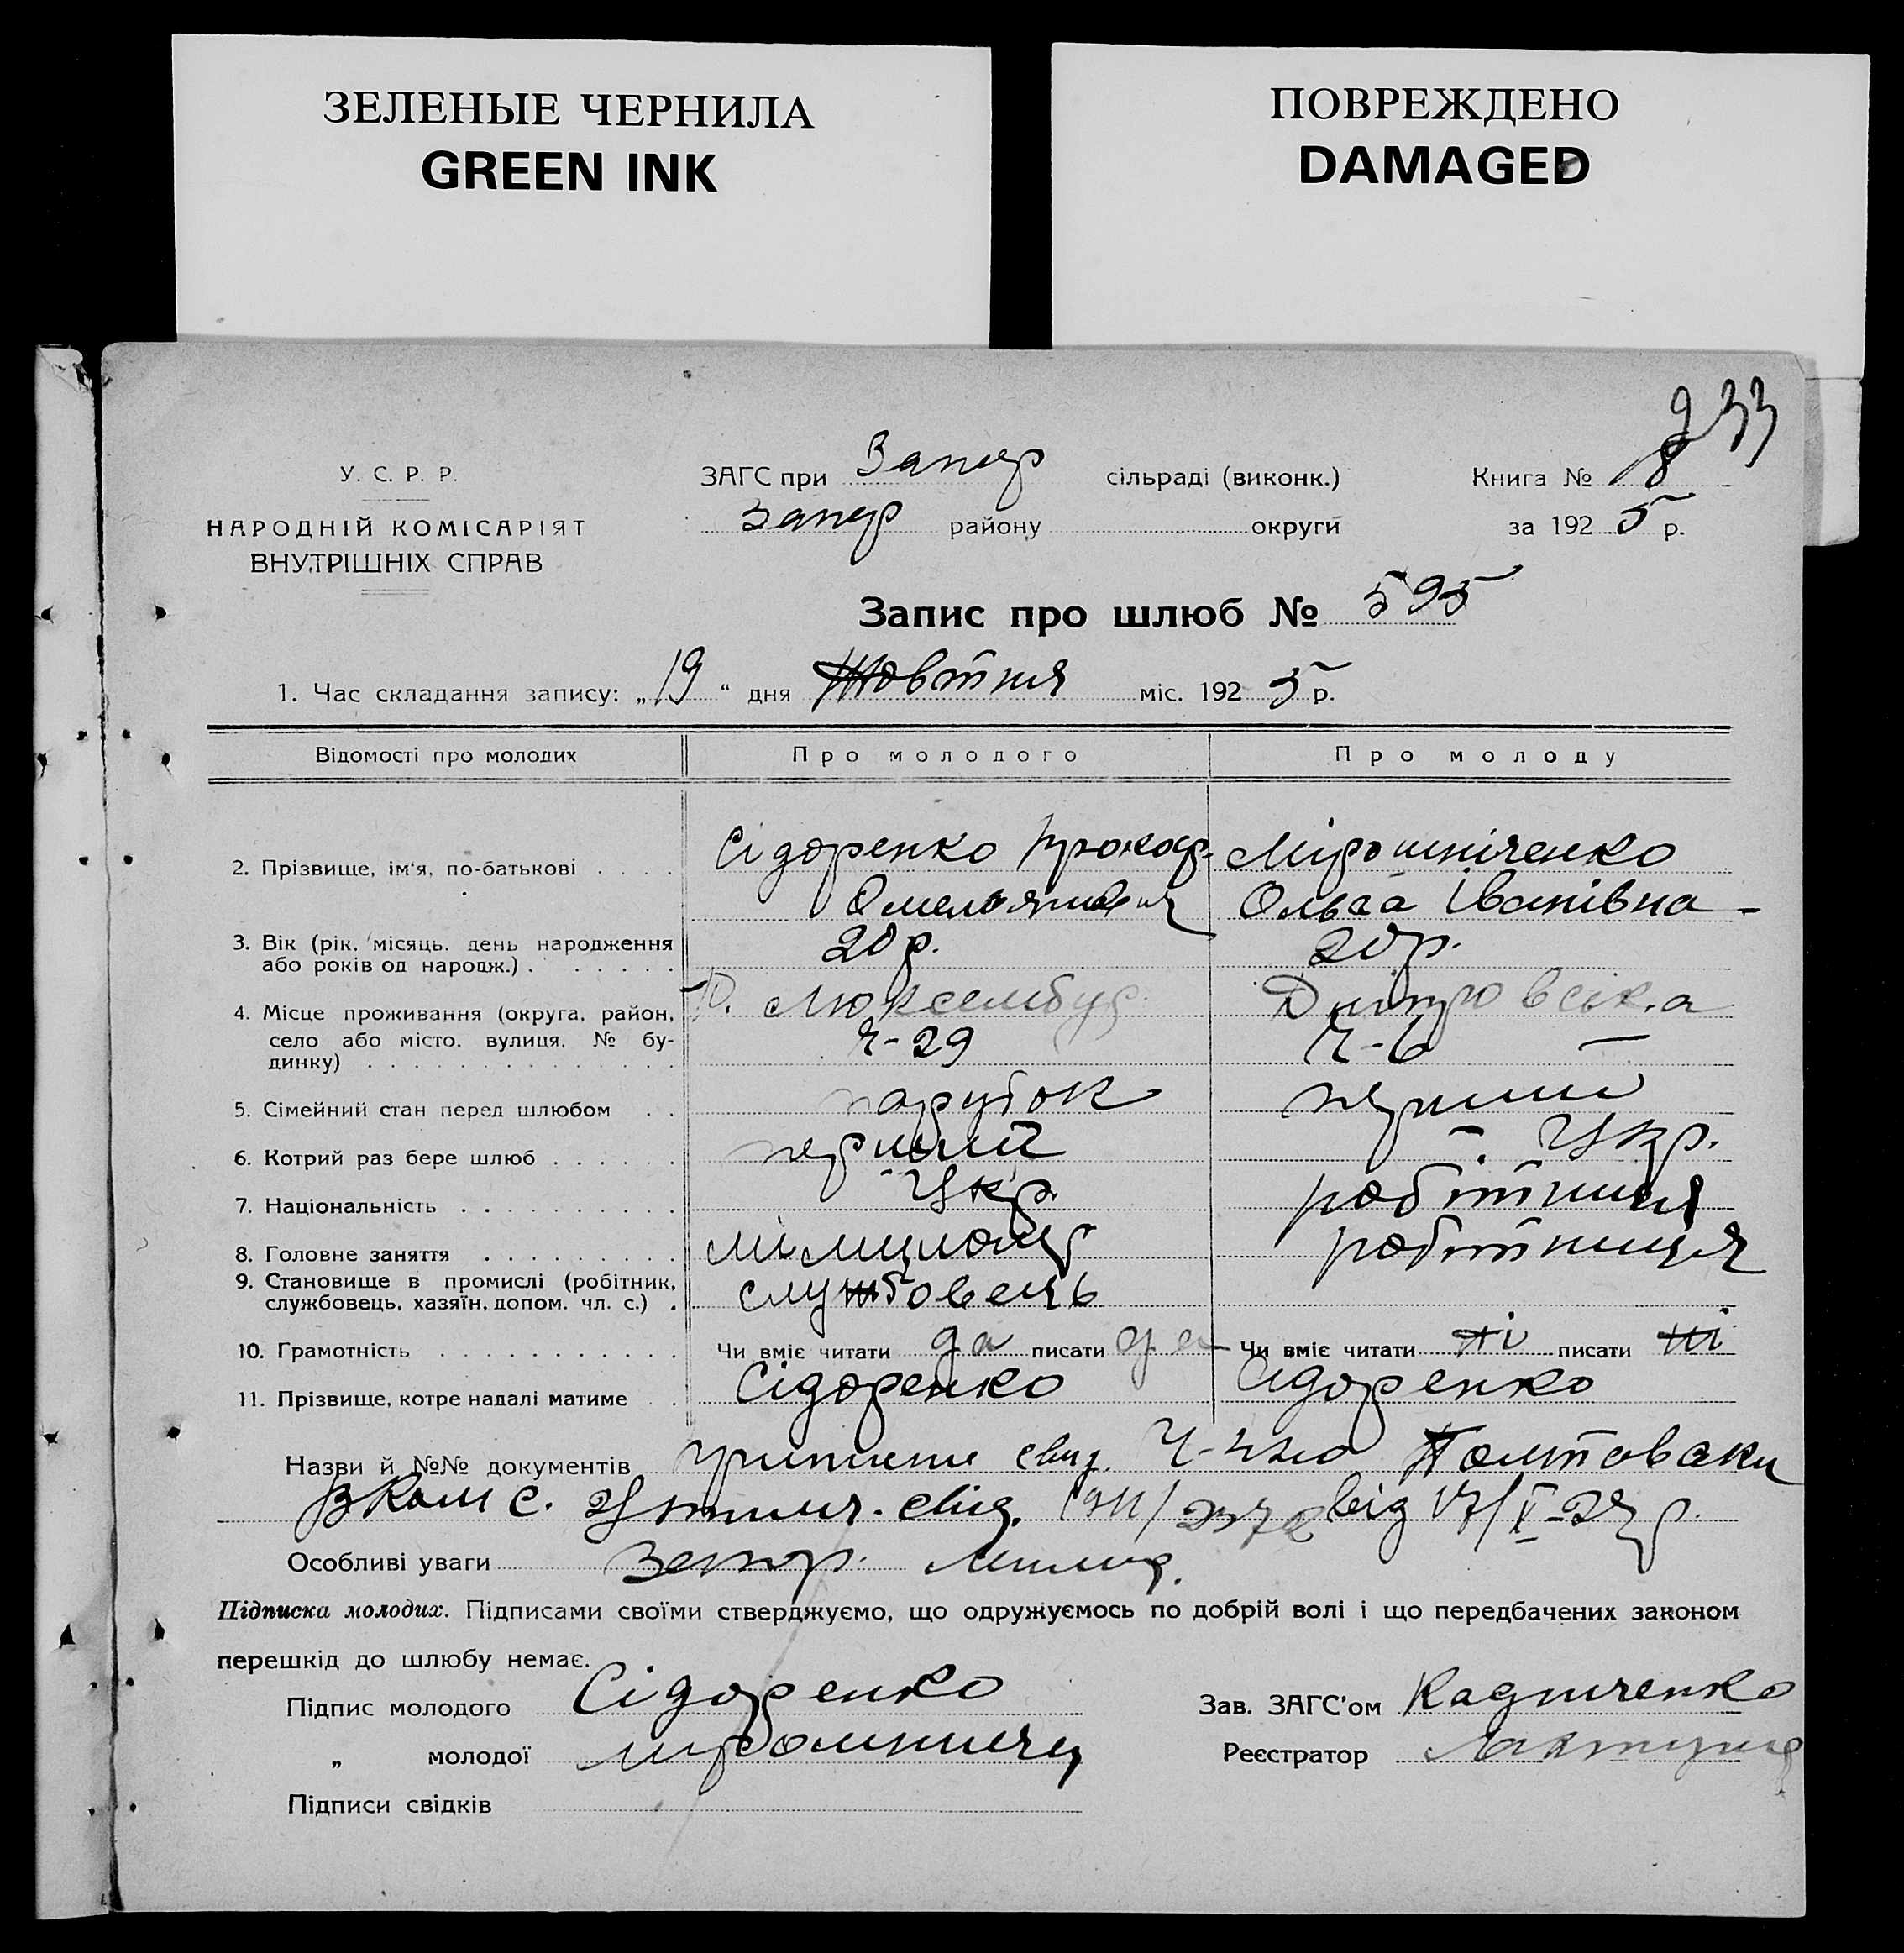 ЗЕЛЕНЫЕ ЧЕРНИЛА
GREEN INK
ПОВРЕЖДЕНО
DAMAGED
233
У. С. Р. Р.
НАРОДНІЙ КОМІСАРІЯТ
ВНУТРІШНІХ СПРАВ
ЗАГС при Запор сільраді (виконк.)
Запор району округи
Книга № 8
за 1925 р.
Запис про шлюб № 595
1. Час складання запису: „19“ дня Жовтня міс. 1925 р.
Відомості про молодих Про молодого Про молоду
2. Прізвище, ім'я, по-батькові Сідоренко Прокоф. Мірошніченко
Омельянович Ольга Іванівна
3. Вік (рік, місяць, день народження 20 р. 20 р.
або років од народж.)
4. Місце проживання (округа, район, Р. Люксембур Дніпровська
село або місто, вулиця, № бу- Ч-29 Ч-6
динку)
5. Сімейний стан перед шлюбом парубок перший
6. Котрий раз бере шлюб перший Укр.
7. Національність Укр. робітниця
8. Головне заняття міліціонер робітниця
9. Становище в промислі (робітник, службовець
службовець, хазяїн, допом. чл. с.)
10. Грамотність Чи вміє читати да писати да Чи вміє читати ні писати ні
11. Прізвище, котре надалі матиме Сідоренко Сідоренко
Назви й №№ документів свид. Полтавски
від 17/V-24 р.
Особливі уваги Запор. милиц.
Підписка молодих. Підписами своїми стверджуємо, що одружуємось по добрій волі і що передбачених законом
перешкід до шлюбу немає.
Підпис молодого Сідоренко
„ молодої
Підписи свідків
Зав. ЗАГС'ом Кадниченко
Реєстратор